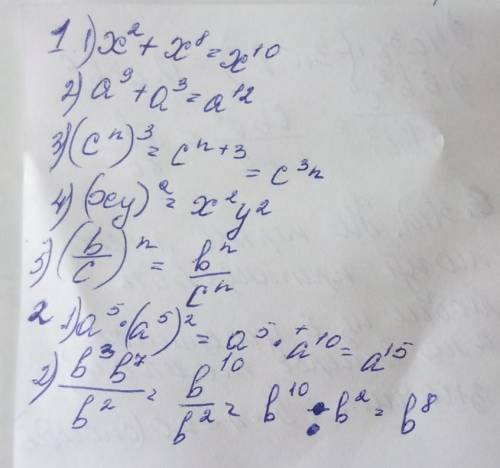 1 1) x² + x⁸ = x¹⁰
2) a⁹ + a³ = a¹²
3) (cⁿ)³ = cⁿ⁺³ = c³ⁿ
4) (xy)² = x²y²
5) (b/c)ⁿ = bⁿ/cⁿ
2 1) a⁵·(a⁵)² = a⁵·a¹⁰ = a¹⁵
2) b³b⁷/b² = b¹⁰/b² = b¹⁰ : b² = b⁸